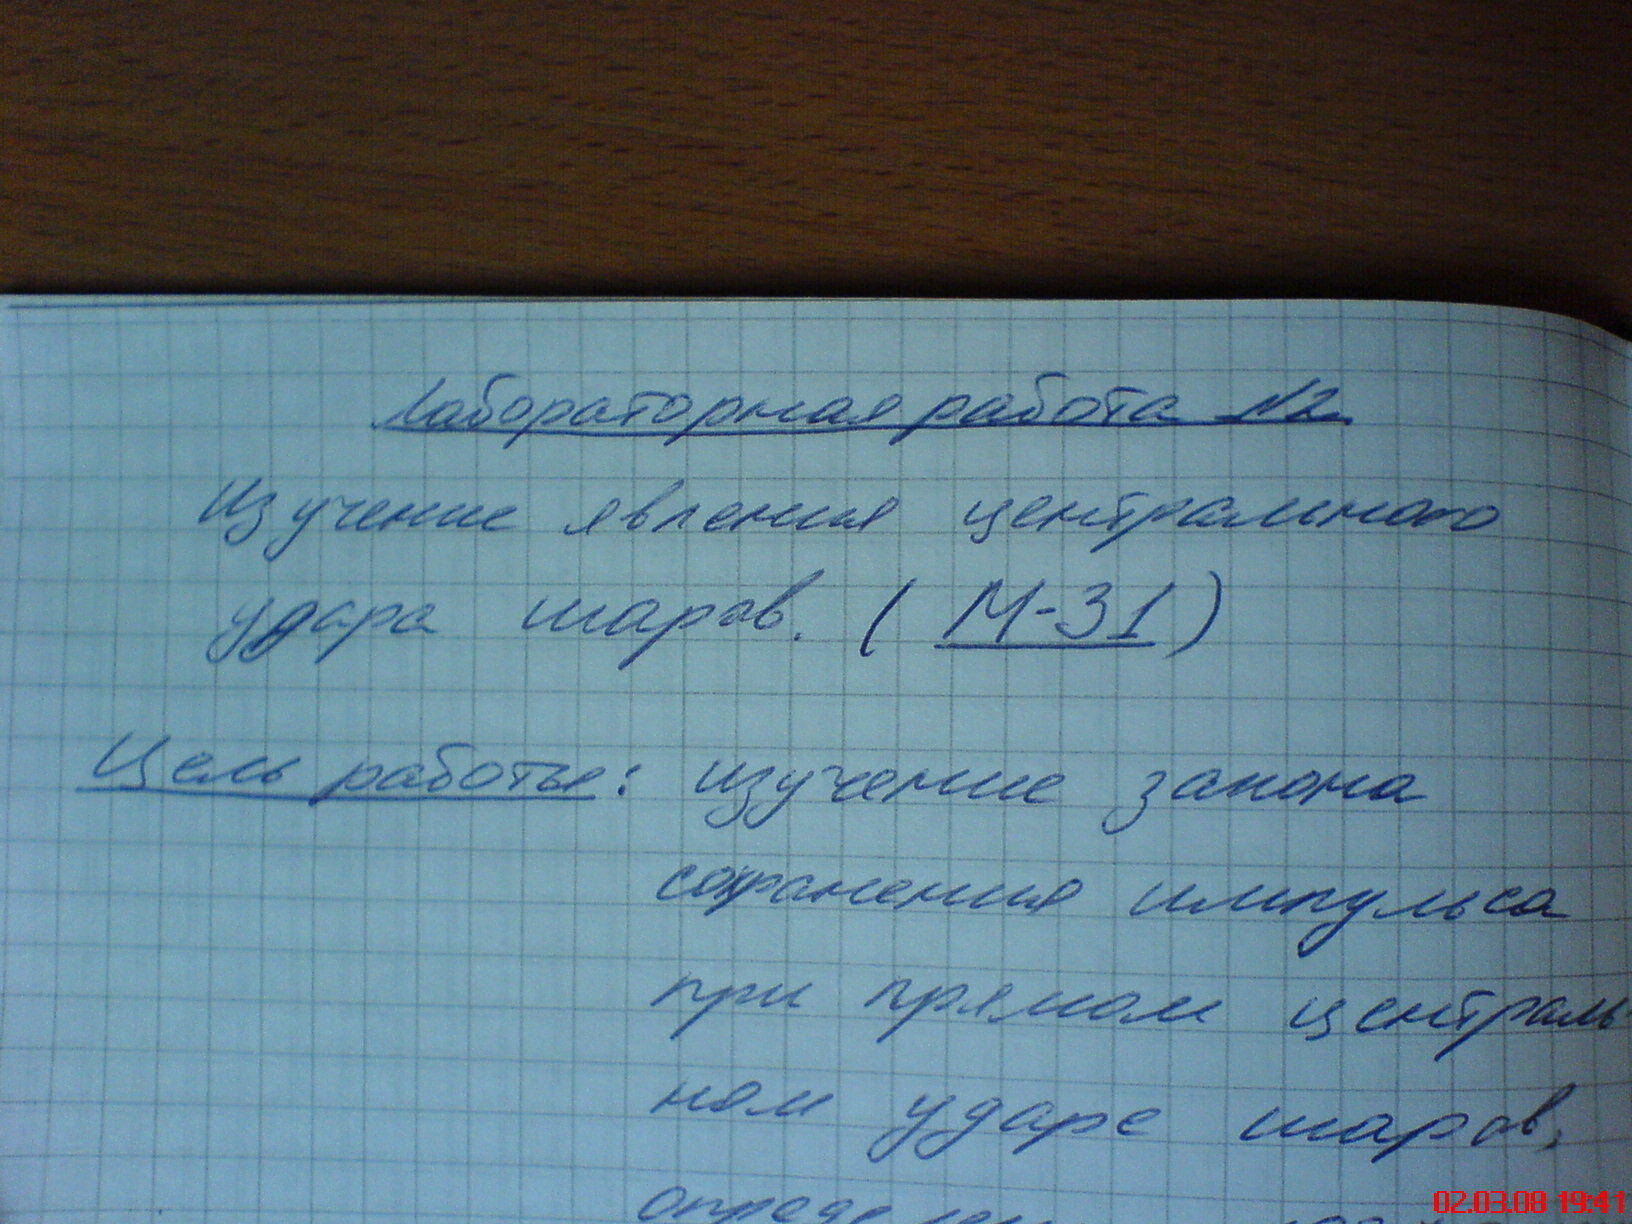 Лабораторная работа №2
Изучение явления центрального
удара шаров. (М-31)
Цель работы: изучение закона
сохранения импульса
при прямом централь-
ном ударе шаров,
02.03.08 19:41